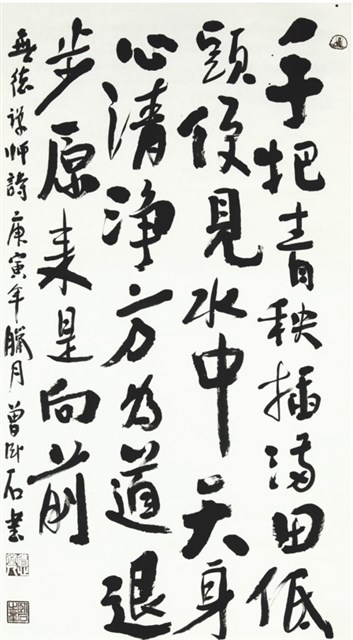 手把青秧插满田低
頭便見水中天身
心清淨方为道退
步原来是向前
無德禅师詩庚寅年臘月曾卧石書